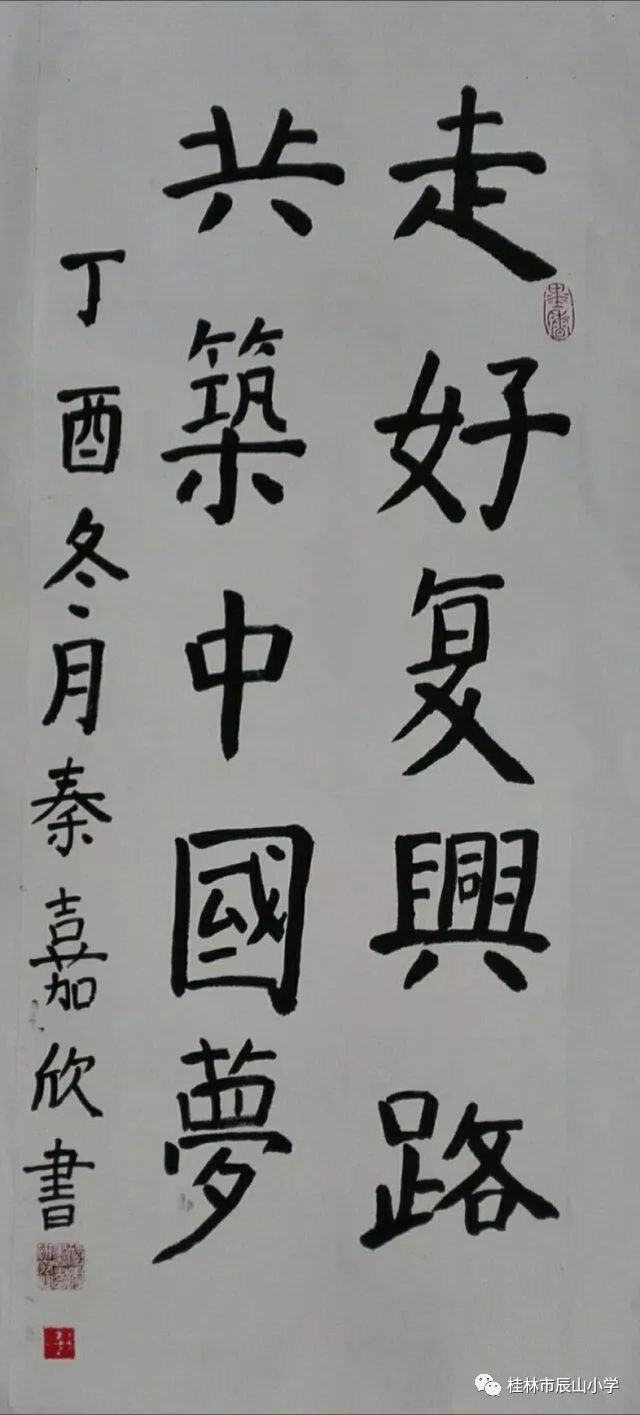 走好复興路
共築中國夢
丁酉冬月秦嘉欣書
墨香
桂林市辰山小学